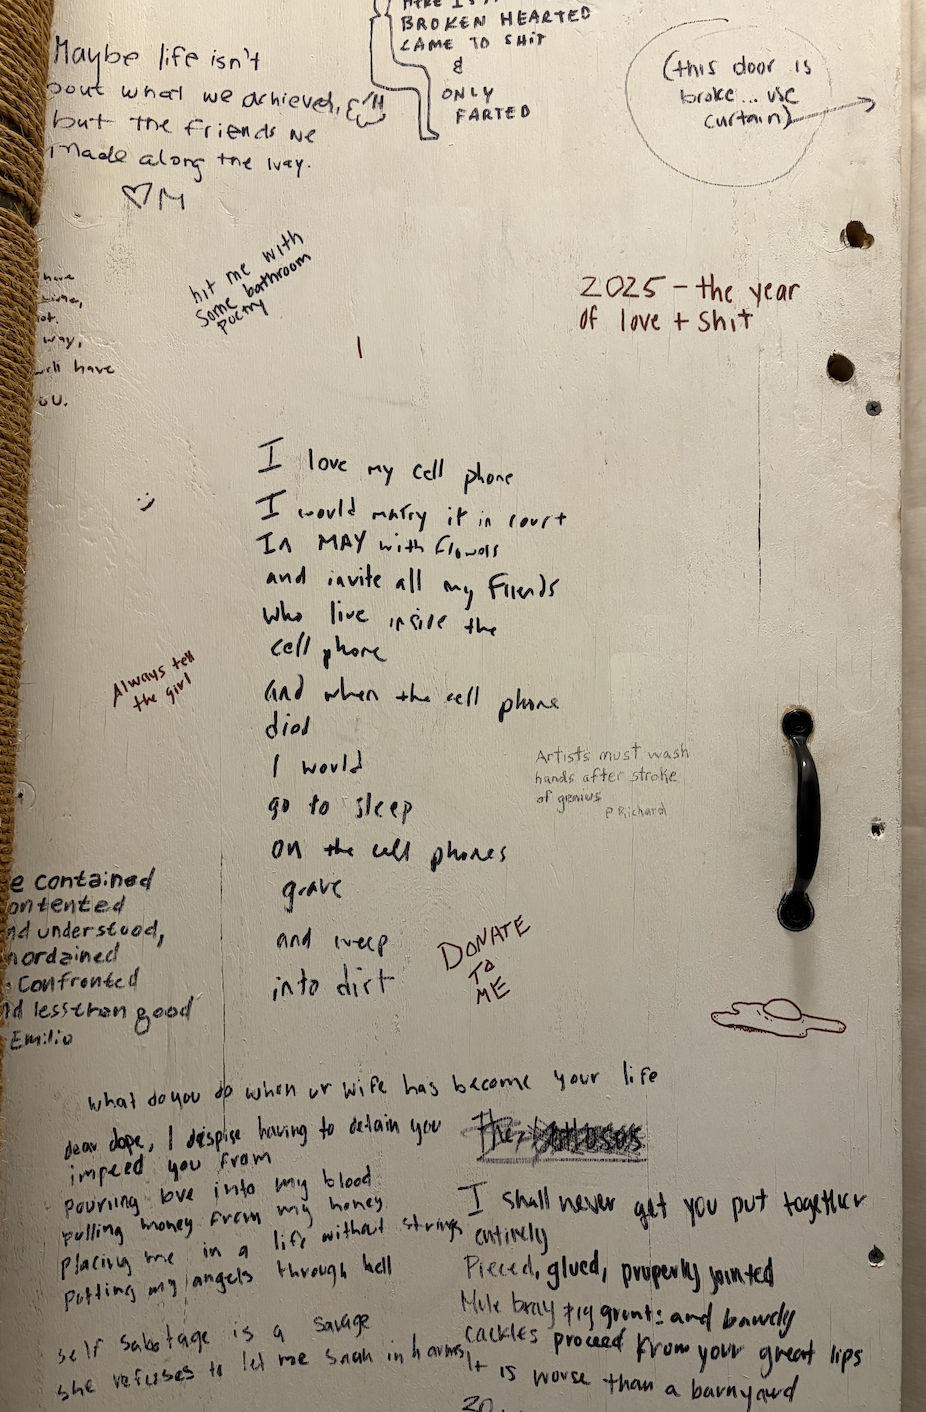 HERE I
BROKEN HEARTED
CAME TO SHIT
&
ONLY
FARTED
Maybe life isn't
bout what we achieved,
but the friends we
Made along the way.
♡M
(this door is
broke... use
curtain)
hit me with
some bathroom
poetry
have
way,
will have
OU.
2025 - the year
of love + shit
I love my cell phone
I would marry it in court
In MAY with flowers
and invite all my friends
who live inside the
cell phone
and when the cell phone
died
I would
go to sleep
on the cell phones
grave
and weep
into dirt
:)
Always tell
the girl
Artists must wash
hands after stroke
of genius
P Richard
e contained
ontented
nd understood,
nordained
Confronted
nd less than good
Emilio
DONATE
TO
ME
what do you do when ur wife has become your life
dear dope, I despise having to detain you
impeed you from
pouring love into my blood
pulling money from my honey
placing me in a life without strings
putting my angels through hell
self sabotage is a savage
she refuses to let me in harms
The
I shall never get you put together
entirely
Pieced, glued, properly jointed
Mule bray pig grunt: and bawdy
cackles proceed from your great lips
It is worse than a barnyard